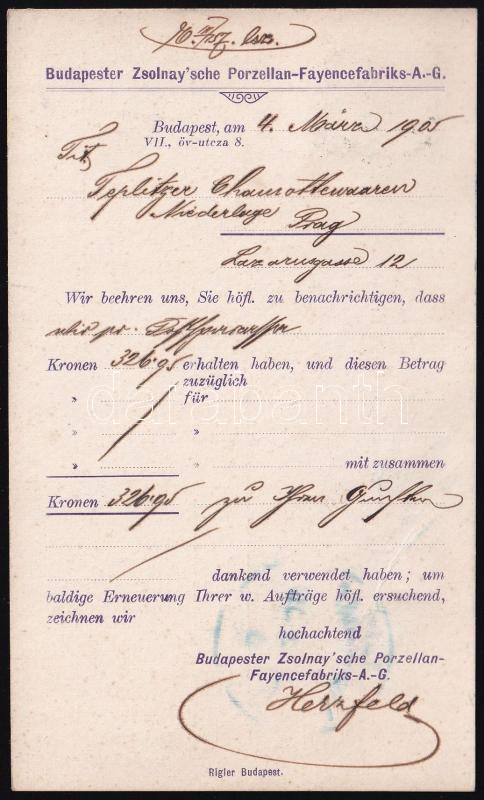 Budapester Zsolnay'sche Porzellan-Fayencefabriks-A.-G.
Budapest, am 4. März 1905
VII., öv-utcza 8.
Tit.
Teplitzer Chamottewaaren
Niederlage Prag
Lazarusgasse 12
Wir beehren uns, Sie höfl. zu benachrichtigen, dass
wir pr. Postsparcassa
Kronen 326·95 erhalten haben, und diesen Betrag
zuzüglich
" für
" "
" " mit zusammen
Kronen 326·95 zu Ihren Gunsten
dankend verwendet haben; um
baldige Erneuerung Ihrer w. Aufträge höfl. ersuchend,
zeichnen wir
hochachtend
Budapester Zsolnay'sche Porzellan-
Fayencefabriks-A.-G.
Herzfeld
Rigler Budapest.
darabanth